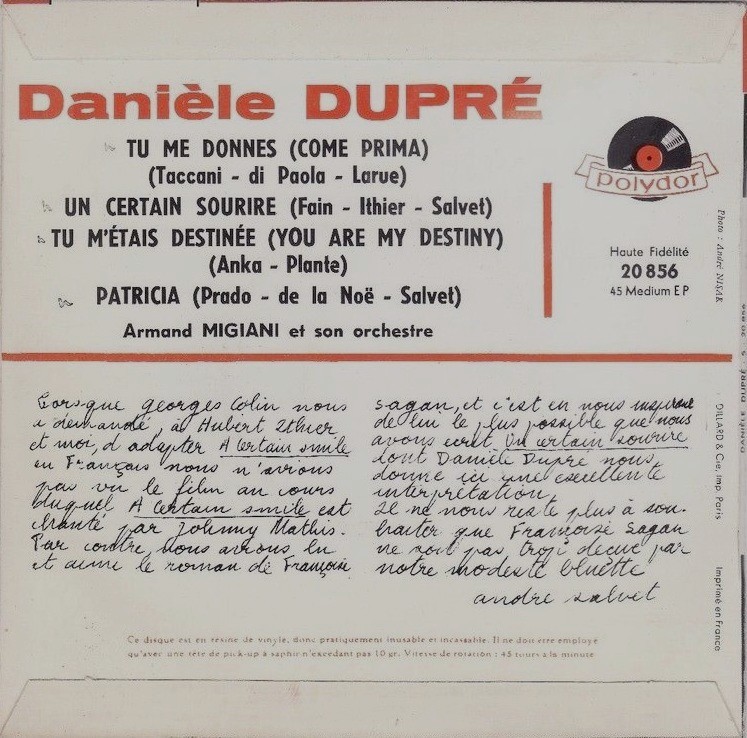 Danièle DUPRÉ
TU ME DONNES (COME PRIMA)
(Taccani - di Paola - Larue)
UN CERTAIN SOURIRE (Fain - Ithier - Salvet)
TU M'ÉTAIS DESTINÉE (YOU ARE MY DESTINY)
(Anka - Plante)
PATRICIA (Prado - de la Noë - Salvet)
Armand MIGIANI et son orchestre
polydor
Haute Fidélité
20 856
45 Medium EP
Photo : André NISAK
Lorsque georges Colin nous
a demandé, à Hubert Ithier
et moi, d'adapter A Certain smile
en Français nous n'avions
pas vu le film au cours
duquel A Certain smile est
chanté par Johnny Mathis.
Par contre, nous avions lu
et aimé le roman de Françoise
Sagan, et c'est en nous inspirant
de lui le plus possible que nous
avons écrit Un certain sourire
dont Danièle Dupré nous
donne ici une excellente
interprétation.
Il ne nous reste plus à sou-
haiter que Françoise Sagan
ne soit pas trop déçue par
notre modeste bluette
andré salvet
DILLARD & Cie, imp. Paris
Imprimé en France
Ce disque est en résine de vinyle, donc pratiquement inusable et incassable. Il ne doit être employé
qu'avec une tête de pick-up à saphir n'excédant pas 10 gr. Vitesse de rotation : 45 tours à la minute